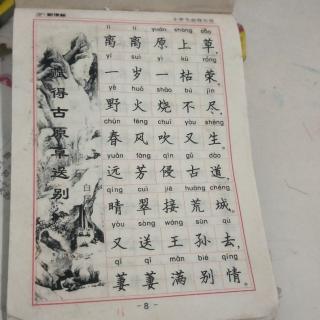 赋得古原草送别
白
lí lí yuán shàng cǎo
离离原上草，
yí suì yì kū róng
一岁一枯荣。
yě huǒ shāo bú jìn
野火烧不尽，
chūn fēng chuī yòu shēng
春风吹又生。
yuǎn fāng qīn gǔ dào
远芳侵古道，
qíng cuì jiē huāng chéng
晴翠接荒城。
yòu sòng wáng sūn qù
又送王孙去，
qī qī mǎn bié qíng
萋萋满别情。
-8-